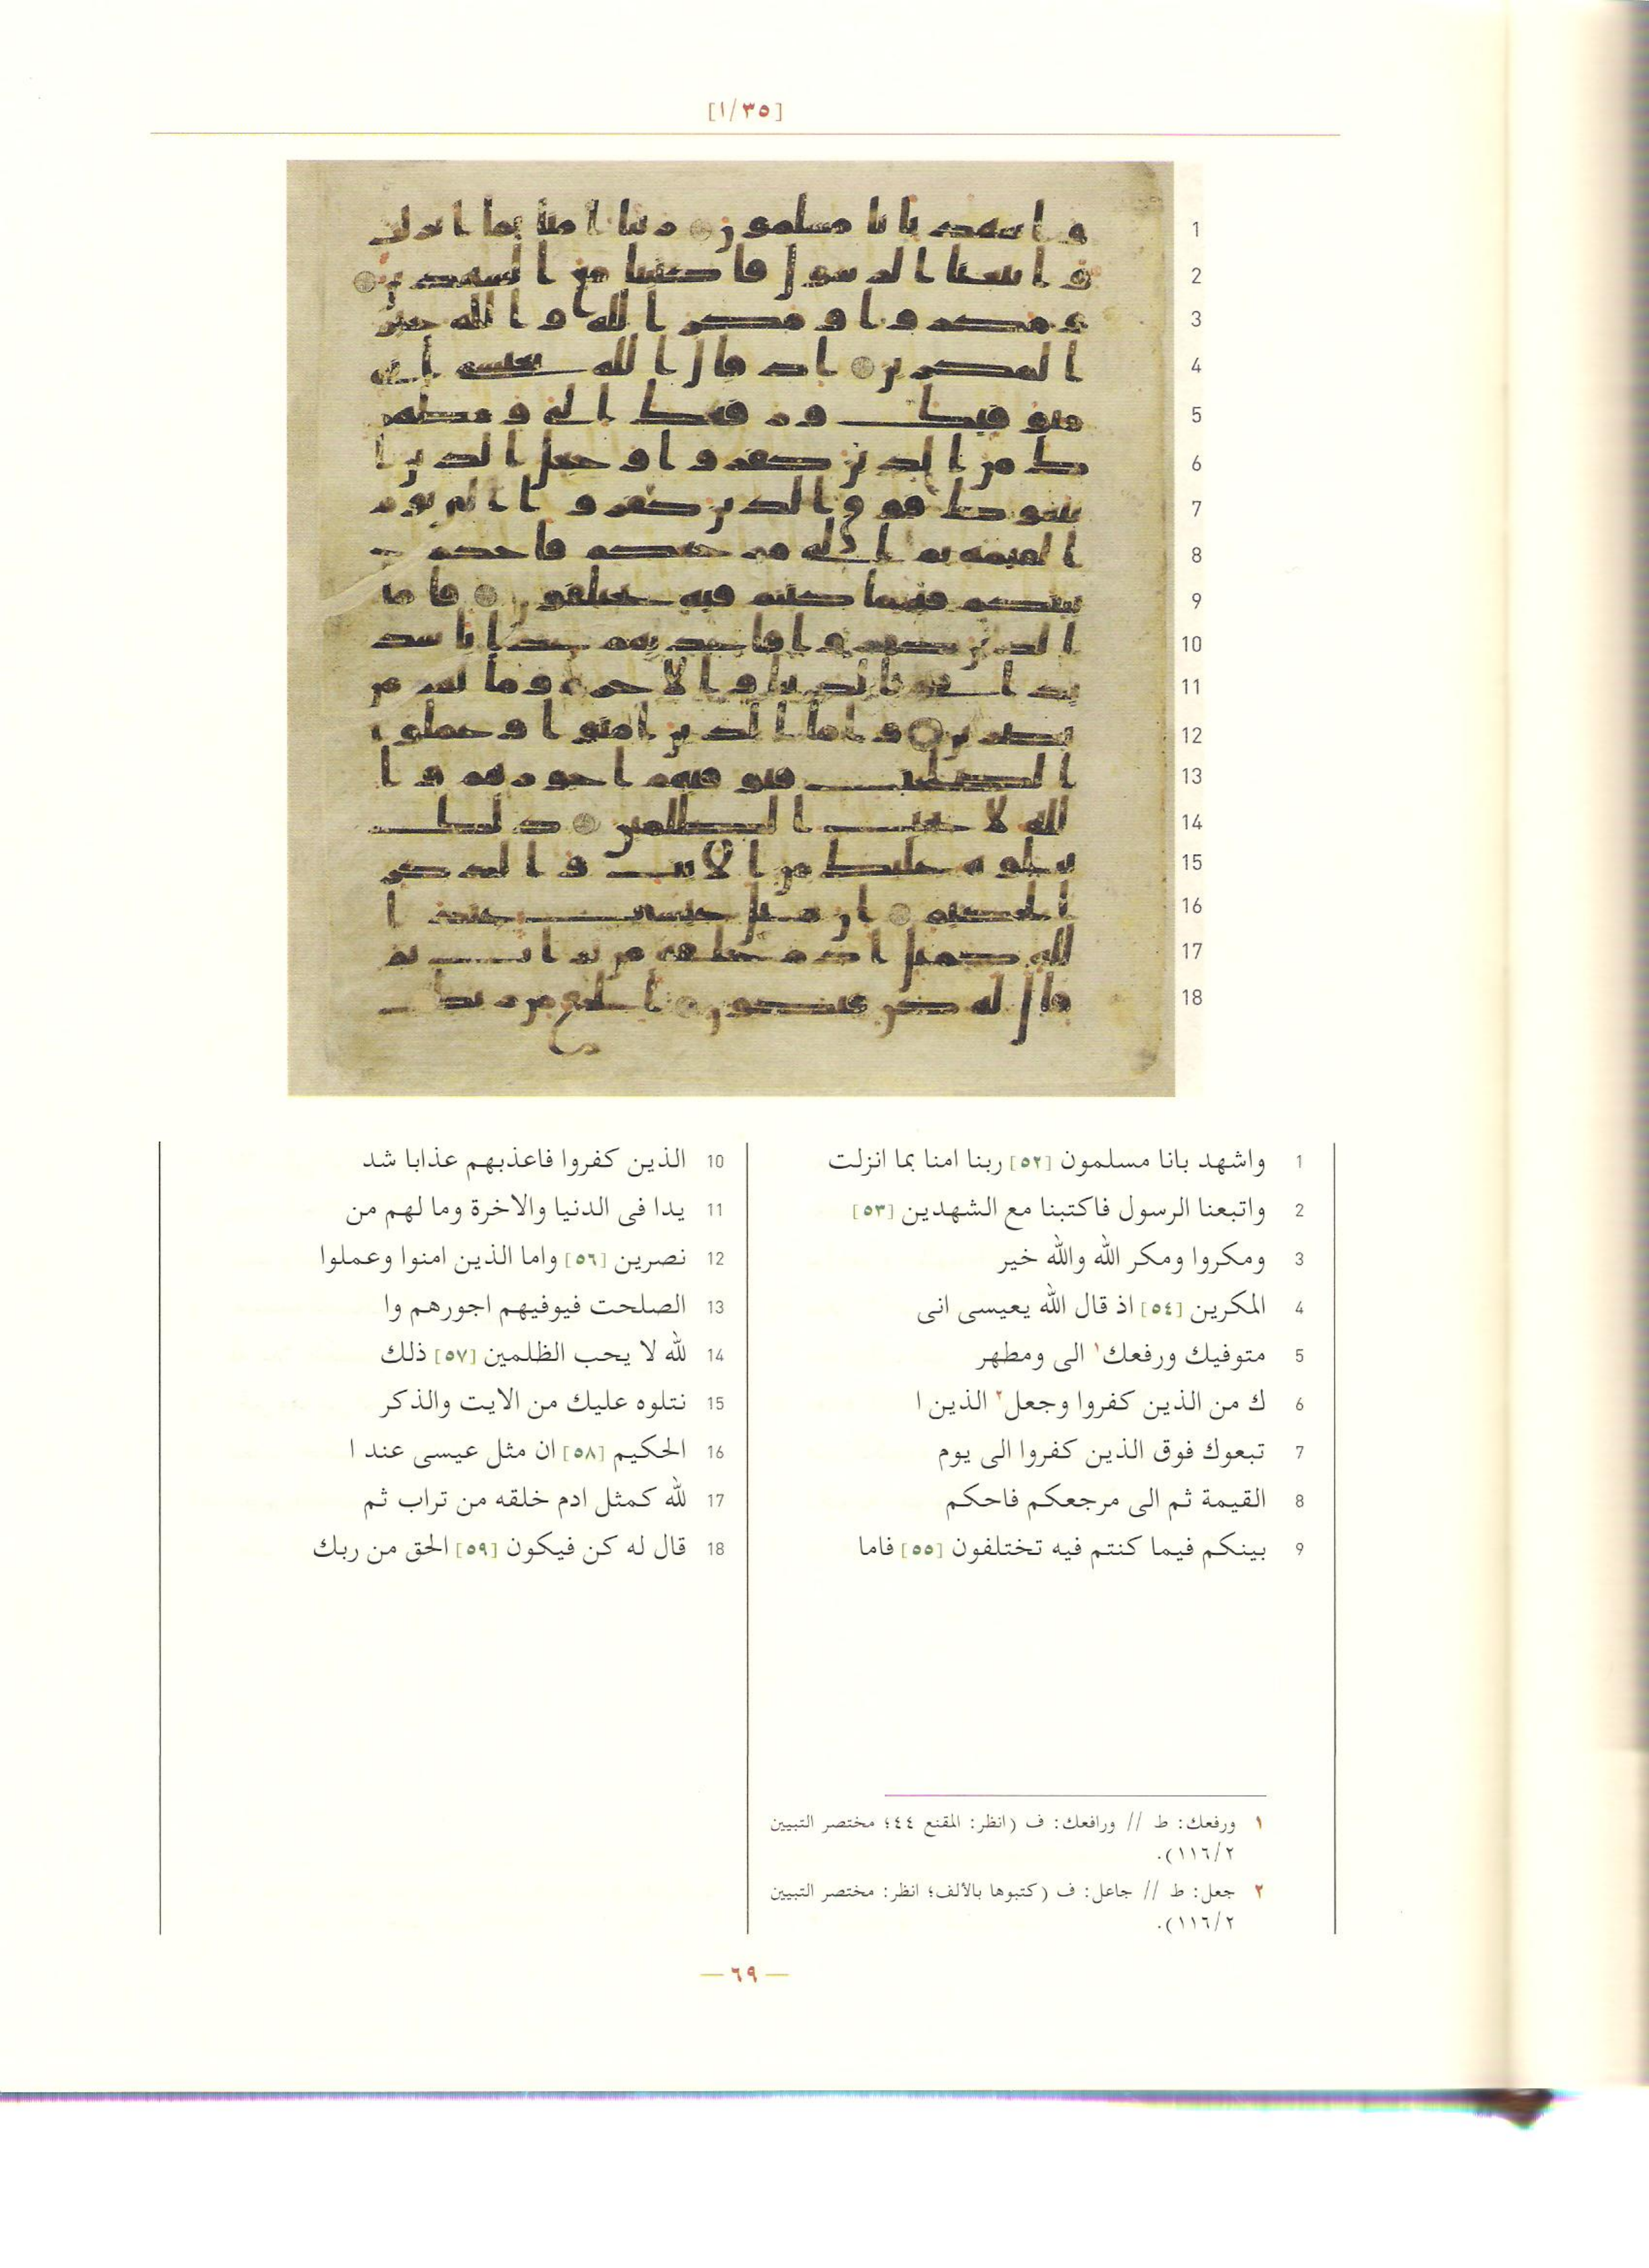 [١/٣٥]
1 واشهد بانا مسلمون [٥٢] ربنا امنا بما انزلت
2 واتبعنا الرسول فاكتبنا مع الشهدين [٥٣]
3 ومكروا ومكر الله والله خير
4 المكرين [٥٤] اذ قال الله يعيسى انى
5 متوفيك ورفعك١ الى ومطهر
6 ك من الذين كفروا وجعل٢ الذين ا
7 تبعوك فوق الذين كفروا الى يوم
8 القيمة ثم الى مرجعكم فاحكم
9 بينكم فيما كنتم فيه تختلفون [٥٥] فاما
10 الذين كفروا فاعذبهم عذابا شد
11 يدا فى الدنيا والاخرة وما لهم من
12 نصرين [٥٦] واما الذين امنوا وعملوا
13 الصلحت فيوفيهم اجورهم وا
14 لله لا يحب الظلمين [٥٧] ذلك
15 نتلوه عليك من الايت والذكر
16 الحكيم [٥٨] ان مثل عيسى عند ا
17 لله كمثل ادم خلقه من تراب ثم
18 قال له كن فيكون [٥٩] الحق من ربك
١ ورفعك: ط // ورافعك: ف (انظر: المقنع ٤٤؛ مختصر التبيين
١١٦/٢).
٢ جعل: ط // جاعل: ف (كتبوها بالألف؛ انظر: مختصر التبيين
١١٦/٢).
— ٦٩ —